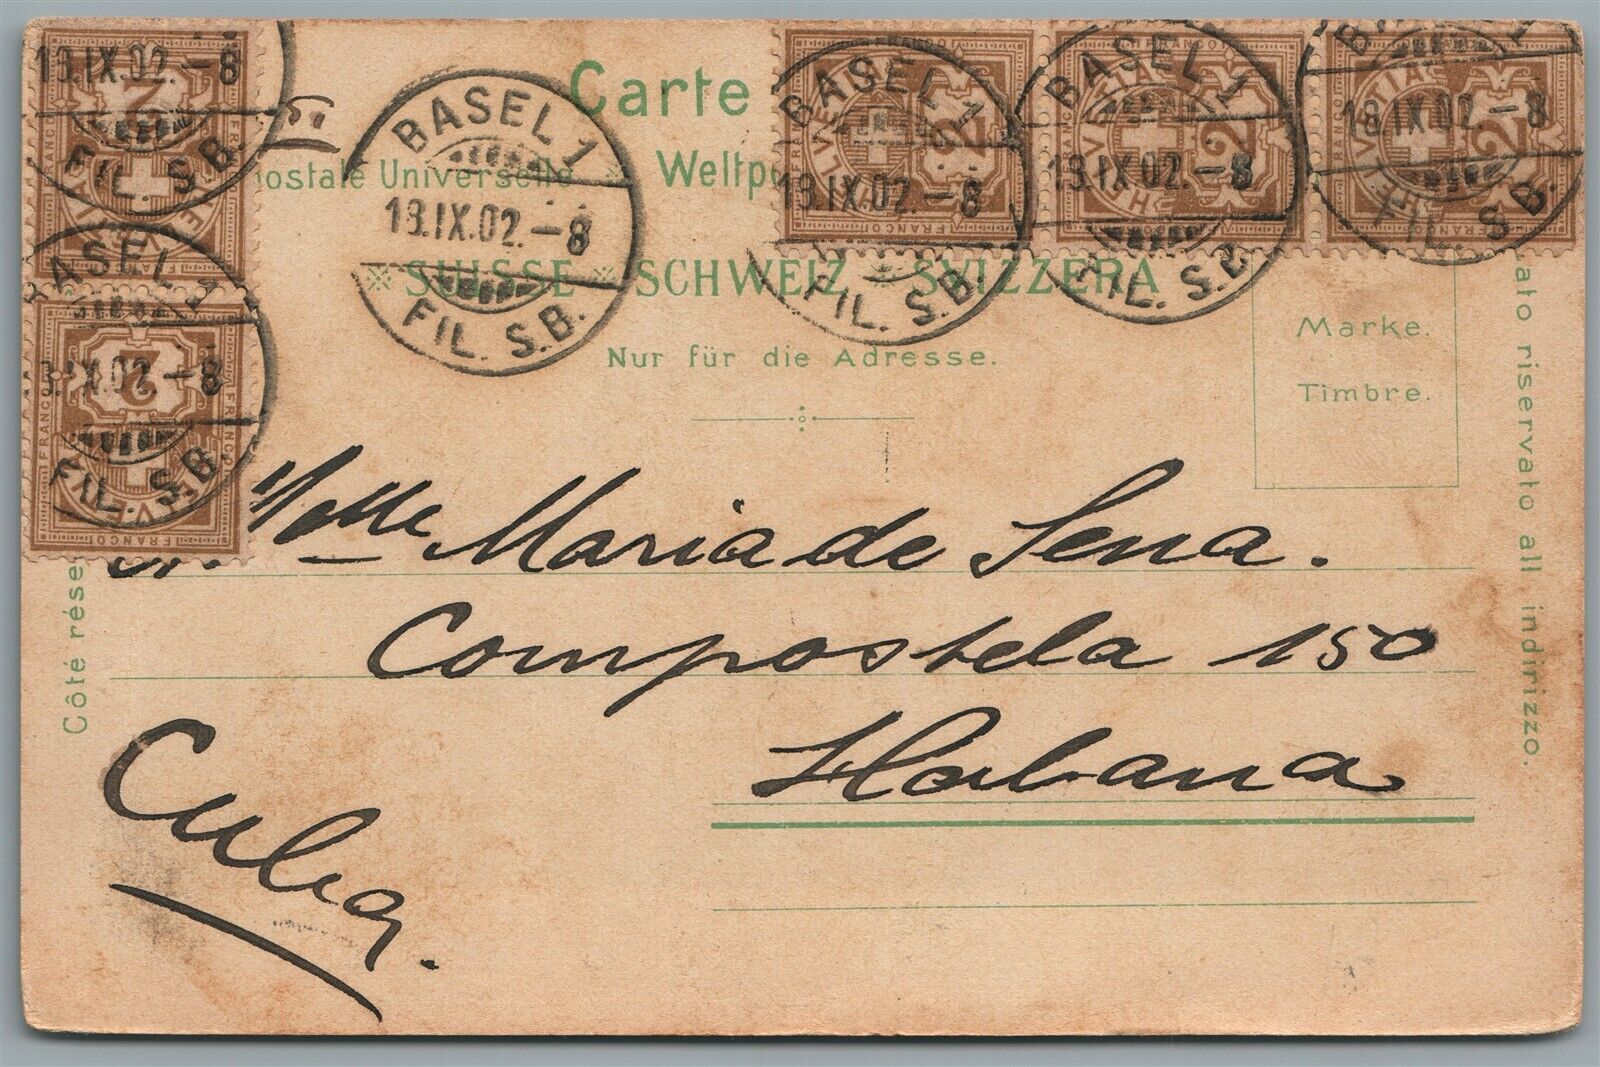 Carte
Weltpo
ostale Universelle
SUISSE SCHWEIZ SVIZZERA
Nur für die Adresse.
Marke.
Timbre.
Côté rése
ato riservato all indirizzo.
BASEL 1
13.IX.02.-8
FIL. S.B.
BASEL 1
13.IX.02.-8
FIL. S.B.
BASEL 1
13.IX.02.-8
FIL. S.B.
BASEL 1
13.IX.02.-8
FIL. S.B.
13.IX.02.-8
FIL. S.B.
ASEL 1
IX.02.-8
FIL. S.B.
HELVETIA
FRANCO
2
Melle Maria de Sena.
Compostela 150
Habana
Cuba.